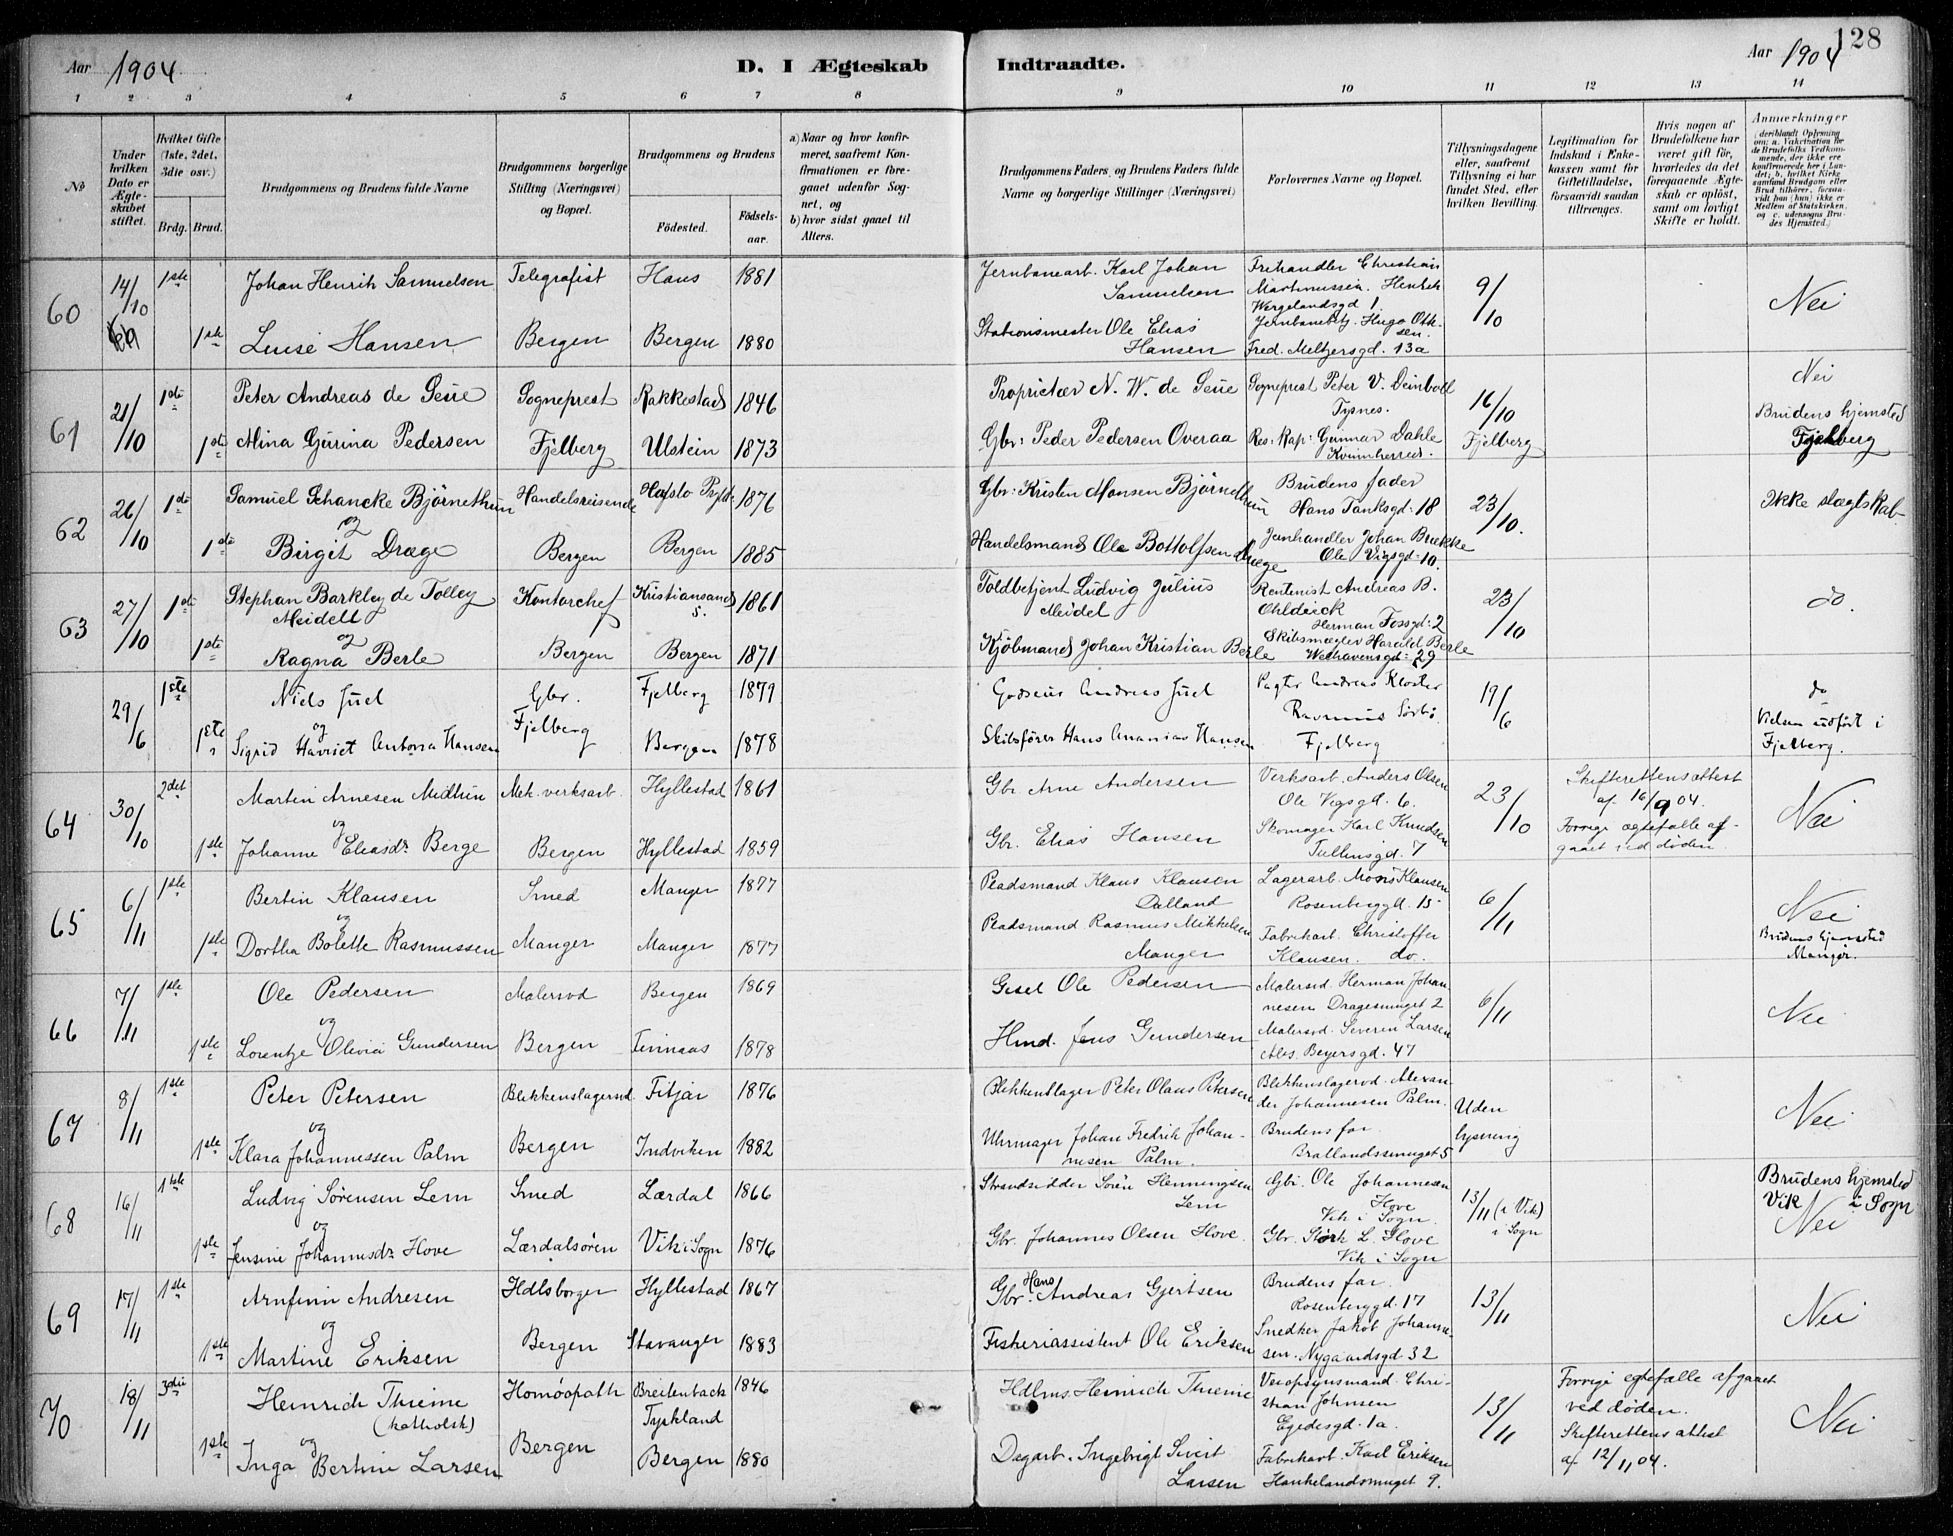 128
Aar 1904
D. I Ægteskab Indtraadte.
Aar 1904
1 2 3 4 5 6 7 8 9 10 11 12 13 14
No
Under hvilken Dato er Ægteskabet stiftet.
Hvilket Gifte (1ste, 2det, 3die osv.)
Brdg. Brud.
Brudgommens og Brudens fulde Navne
Brudgommens borgerlige Stilling (Næringsvei) og Bopæl.
Brudgommens og Brudens
Födested. Födsels-aar.
a) Naar og hvor konfirmeret, saafremt Konfirmationen er foregaaet udenfor Sognet, og
b) hvor sidst gaaet til Alters.
Brudgommens Faders, og Brudens Faders fulde Navne og borgerlige Stillinger (Næringsvei)
Forlovernes Navne og Bopæl.
Tillysningsdagene eller, saafremt Tillysning ei har fundet Sted, efter hvilken Bevilling.
Legitimation for Indskud i Enkekassen samt for Giftetilladelse, forsaavidt saadan tiltrænges.
Hvis nogen af Brudefolkene har været gift för, hvorledes da det foregaaende Ægteskab er oplöst, samt om lovligt Skifte er holdt.
Anmerkninger
60 14/10 1ste Johan Henrik Samuelsen Telegrafist Haus 1881 Jernbanearb. Karl Johan Samuelsen Frihandler Christian Martinussen. Henrik Wergelandsgd 1. 9/10 Nei
1ste Luise Hansen Bergen Bergen 1880 Stationsmester Ole Elias Hansen Jernbanebtj. Hugo Ottesen. Fred. Meltzersgd. 13a
61 21/10 1ste Peter Andreas de Seue Sogneprest Rakkestad 1846 Proprietær N. W. de Seue Sogneprest Peter V. Deinboll Tysnes. 16/10 Nei
1ste Mina Gurina Pedersen Fjelberg Ulstein 1873 Gbr: Peder Pedersen Overaa Res: Kap: Gunnar Dahle Kvinnherred. Fjelberg Brudens hjemsted Fjelberg
62 26/10 1ste Samuel Schancke Björnethun Handelsreisende Hafslo 1876 Gbr: Kristen Monsen Björnethun Brudens fader Hans Tanksgd: 18 23/10. Ikke slægtskab
og
1ste Birgit Dræge Bergen Bergen 1885 Handelsmand Ole Bottolfsen Dræge Jernhandler Johan Brekke Ole Vigsgd: 10.
63 27/10 1ste Stephan Barkley de Tolley Meidell Kontorchef Kristiansand S. 1861 Toldbetjent Ludvig Julius Meidel Rentenist Andreas B. Ohldieck Herman Fossgd: 2 23/10 do.
og
1ste Ragna Berle Bergen Bergen 1871 Kjöbmand Johan Kristian Berle Skibsmægler Harald Berle Welhavensgd: 29
29/6 1ste Niels Juel Gbr. Fjelberg 1879 Godseier Andreas Juel Pagter Andreas Kloster 19/6 do
og
1ste Sigrid Harriet Antona Hansen Fjelberg Bergen 1878 Skibsförer Hans Ananias Hansen Rasmus Sörbö Fjelberg Vielsen udfört i Fjelberg.
64 30/10 2det Martin Arnesen Midthun Mek. verksarb. Hyllestad 1861 Gbr. Arne Andersen Verksarb. Anders Olsen Ole Vigsgd. 6. 23/10 Skifterettens attest af 16/9 04. Nei
og
1ste Johanne Eliasdr Berge Bergen Hyllestad 1859 Gbr. Elias Hansen Skomager Karl Knudsen Tullinsgd. 7 Forrige ægtefælle afgaaet ved döden.
65 6/11 1ste Bertin Klausen Smed Manger 1877 Pladsmand Klaus Klausen Dalland Lagerarb. Mons Klausen Rosenberggd. 15 6/11 Nei
og
1ste Dortha Bolette Rasmussen Manger Manger 1877 Pladsmand Rasmus Mikkelsen Manger Fabrikarb. Christoffer Klausen. do. Brudens hjemsted Manger.
66 7/11 1ste Ole Pedersen Malersvd Bergen 1869 Gisel Ole Pedersen Malersvd. Herman Johannesen Dragesmuget 2 6/11 Nei
og
1ste Lorentze Olivia Gundersen Bergen Finnaas 1878 Hmd. Jens Gundersen Malersvd. Severin Larsen Abs. Beyersgd. 47
67 8/11 1ste Peter Petersen Blikkenslagersvd. Fitjar 1876 Blikkenslager Peter Olaus Petersen Blikkenslagersvd. Alexander Johannesen Palm. Uden lysning Nei
og
1ste Klara Johannessen Palm Bergen Indviken 1882 Uhrmager Johan Fredrik Johannesen Palm. Brudens far. Bratlandssmuget 5
68 16/11 1ste Ludvig Sørensen Lem Smed Lærdal 1866 Strandsidder Sören Henningsen Lem Gbr. Ole Johannesen Hove Vik i Sogn. 13/11 (i Vik) i Sogn Brudens hjemsted Vik i Sogn
og
1ste Jensine Johannesdr Hove Lærdalsören Vik i Sogn 1876 Gbr. Johannes Olsen Hove. Gbr. Störk L. Hove Vik i Sogn Nei
69 17/11 1ste Arnfinn Andresen Hdlsborger Hyllestad 1867 Gbr. Hans Andreas Gjertsen Brudens far. Rosenberggd. 17 13/11 Nei
og
1ste Martine Eriksen Bergen Stavanger 1883 Fiskeriassistent Ole Eriksen Snedker Jakob Johannesen. Nygaardsgd 32
70 18/11 3die Heinrich Thieme (katholsk) Homöopath Breitenback Tyskland 1846 Hdlms. Heinrich Thieme Veiopsynsmand. Christian Johnsen Egedesgd. 1a. 13/11 Forrige egtefælle afgaaet ved döden. Nei
og
1ste Inga Bertine Larsen Bergen Bergen 1880 Dagarb. Ingebrigt Sivert Larsen Fabrikarb. Karl Eriksen Haukelandsmuget 9. Skifterettens attest af 12/11 04.